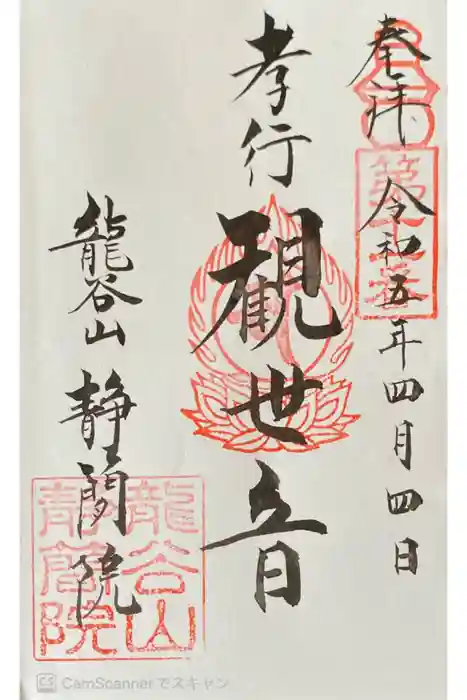 奉拝
令和五年四月四日
孝行
観世音
龍谷山
静蘭院
龍谷山
静蘭院
CS CamScanner でスキャン